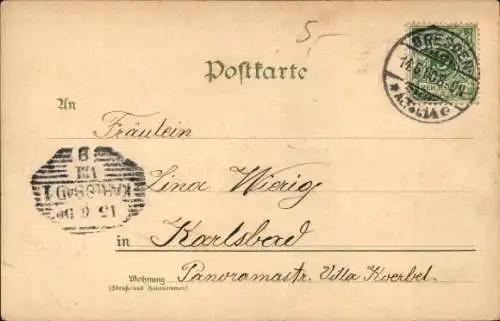 5.-
Postkarte
DRESDEN
ALTST. 14 e
An
Fräulein
Lina Wierig
in Karlsbad
Wohnung Panoramastr. Villa Koerbel.
(Straße und Hausnummer)
KARLSBAD 1
15 6
VIII
B